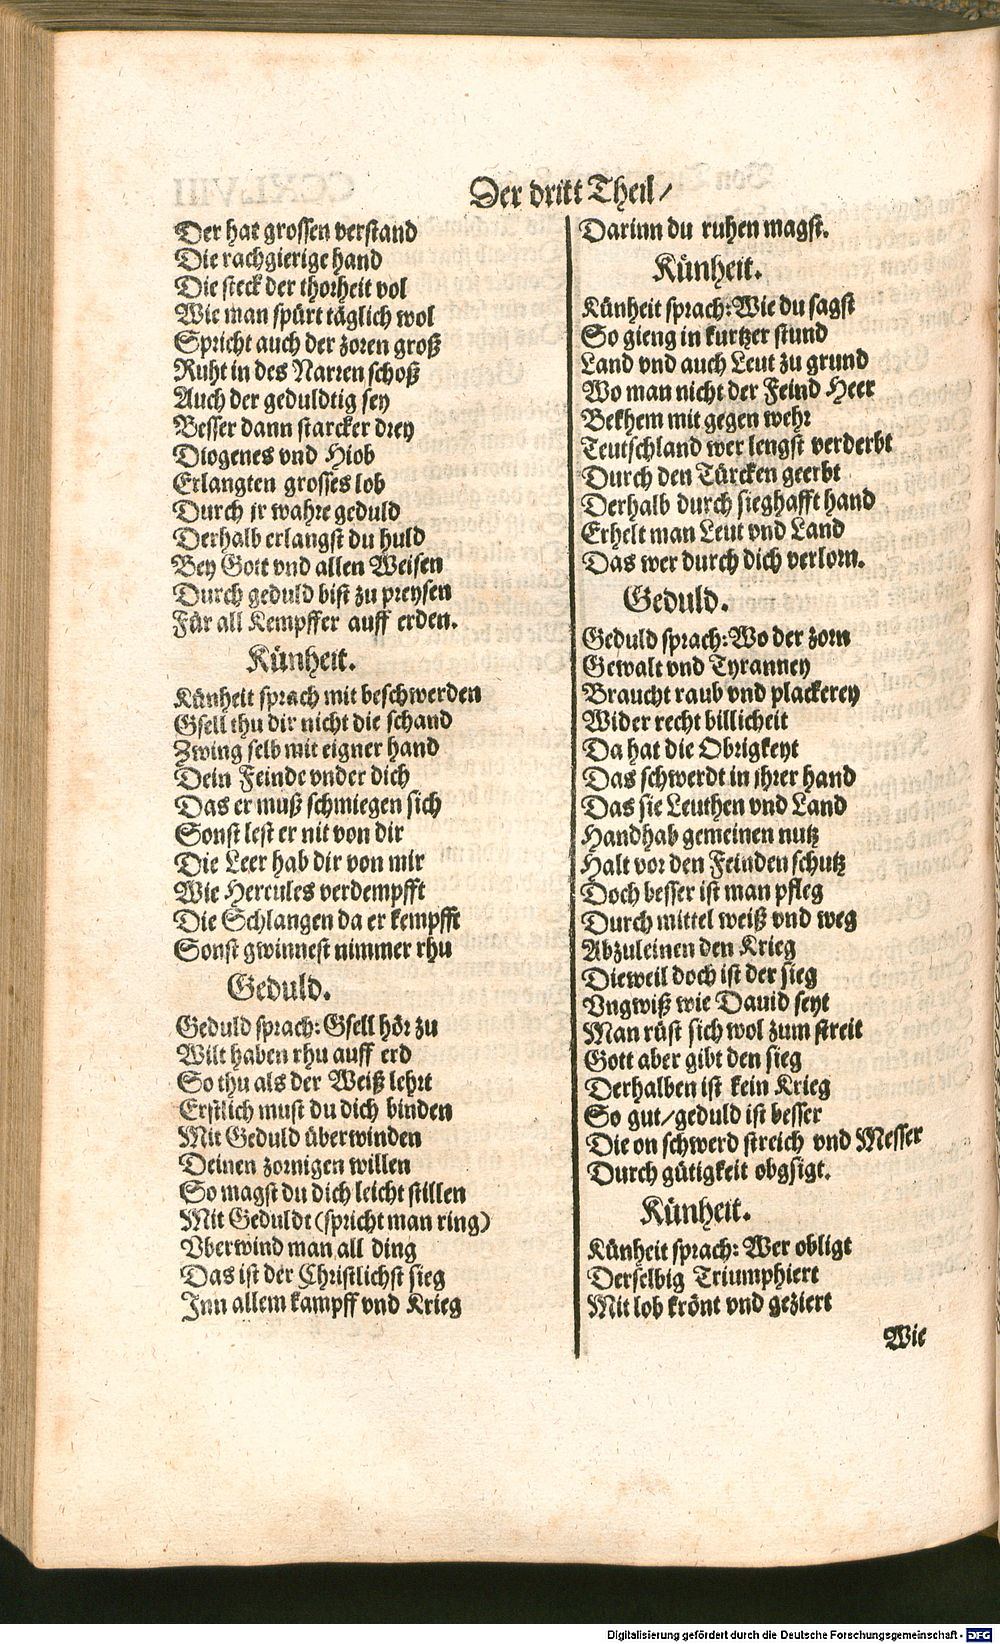 Der dritt Theil/
Der hat grossen verstand
Die rachgierige hand
Die steck der thorheit vol
Wie man spürt täglich wol
Spricht auch der zoren groß
Ruht in des Narren schoß
Auch der geduldtig sey
Besser dann starcker drey
Diogenes vnd Hiob
Erlangten grosses lob
Durch jr wahre geduld
Derhalb erlangst du huld
Bey Gott vnd allen Weisen
Durch geduld bist zu preysen
Für all Kempffer auff erden.
Künheit.
Künheit sprach mit beschwerden
Gsell thu dir nicht die schand
Zwing selb mit eigner hand
Dein Feinde vnder dich
Das er muß schmiegen sich
Sonst lest er nit von dir
Die Leer hab dir von mir
Wie Hercules verdempfft
Die Schlangen da er kempfft
Sonst gwinnest nimmer rhu
Geduld.
Geduld sprach: Gsell hör zu
Wilt haben rhu auff erd
So thu als der Weiß lehrt
Erstlich must du dich binden
Mit Geduld überwinden
Deinen zornigen willen
So magst du dich leicht stillen
Mit Geduldt (spricht man ring)
Vberwind man all ding
Das ist der Christlichst sieg
Inn allem kampff vnd Krieg
Darinn du ruhen magst.
Künheit.
Künheit sprach: Wie du sagst
So gieng in kurtzer stund
Land vnd auch Leut zu grund
Wo man nicht der Feind Heer
Bekhem mit gegen wehr
Teutschland wer lengst verderbt
Durch den Türcken geerbt
Derhalb durch sieghafft hand
Erhelt man Leut vnd Land
Das wer durch dich verlorn.
Geduld.
Geduld sprach: Wo der zorn
Gewalt vnd Tyranney
Braucht raub vnd plackerey
Wider recht billicheit
Da hat die Obrigkeyt
Das schwerdt in jhrer hand
Das sie Leuthen vnd Land
Handhab gemeinen nutz
Halt vor den Feinden schutz
Doch besser ist man pfleg
Durch mittel weiß vnd weg
Abzuleinen den Krieg
Dieweil doch ist der sieg
Vngwiß wie Dauid seyt
Man rüst sich wol zum streit
Gott aber gibt den sieg
Derhalben ist kein Krieg
So gut/geduld ist besser
Die on schwerd streich vnd Messer
Durch gütigkeit obgsigt.
Künheit.
Künheit sprach: Wer obligt
Derselbig Triumphiert
Mit lob krönt vnd geziert
Wie
Digitalisierung gefördert durch die Deutsche Forschungsgemeinschaft - DFG